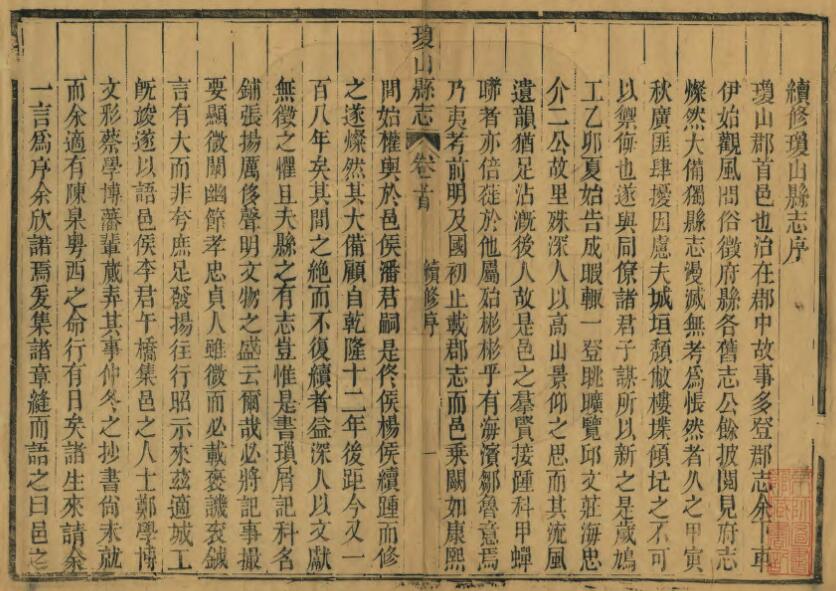 續修瓊山縣志序
瓊山郡首邑也治在郡中故事多登郡志余下車
伊始觀風問俗徵府縣各舊志公餘披閱見府志
燦然大備獨縣志漫滅無考爲悵然者久之甲寅
秋廣匪肆擾因慮夫城垣頹敝樓堞傾圮之不可
以禦侮也遂與同僚諸君子謀所以新之是歲鳩
工乙卯夏始告成暇輒一登眺曠覽邱文莊海忠
介二公故里殊深人以高山景仰之思而其流風
遺韻猶足沾漑後人故是邑之羣賢接踵科甲蟬
聯者亦倍蓰於他屬始彬彬乎有海濱鄒魯意焉
乃夷考前明及國初止載郡志而邑乘闕如康熙
瓊山縣志
卷首
續修序
一
間始權輿於邑侯潘君嗣是佟侯楊侯續踵而修
之遂燦然其大備顧自乾隆十二年後距今又一
百八年矣其間之絶而不復續者益深人以文獻
無徵之懼且夫縣之有志豈惟是書瑣屑記科名
鋪張揚厲侈聲明文物之盛云爾哉必將記事撮
要顯微闡幽節孝忠貞人雖微而必載褒譏袞鉞
言有大而非夸庶足發揚往行昭示來玆適城工
旣竣遂以語邑侯李君午橋集邑之人士鄭學博
文彩蔡學博藩輩蕆弄其事仲冬之抄書尙未就
而余適有陳臬粤西之命行有日矣諸生來請余
一言爲序余欣諾焉爰集諸章縫而語之曰邑之